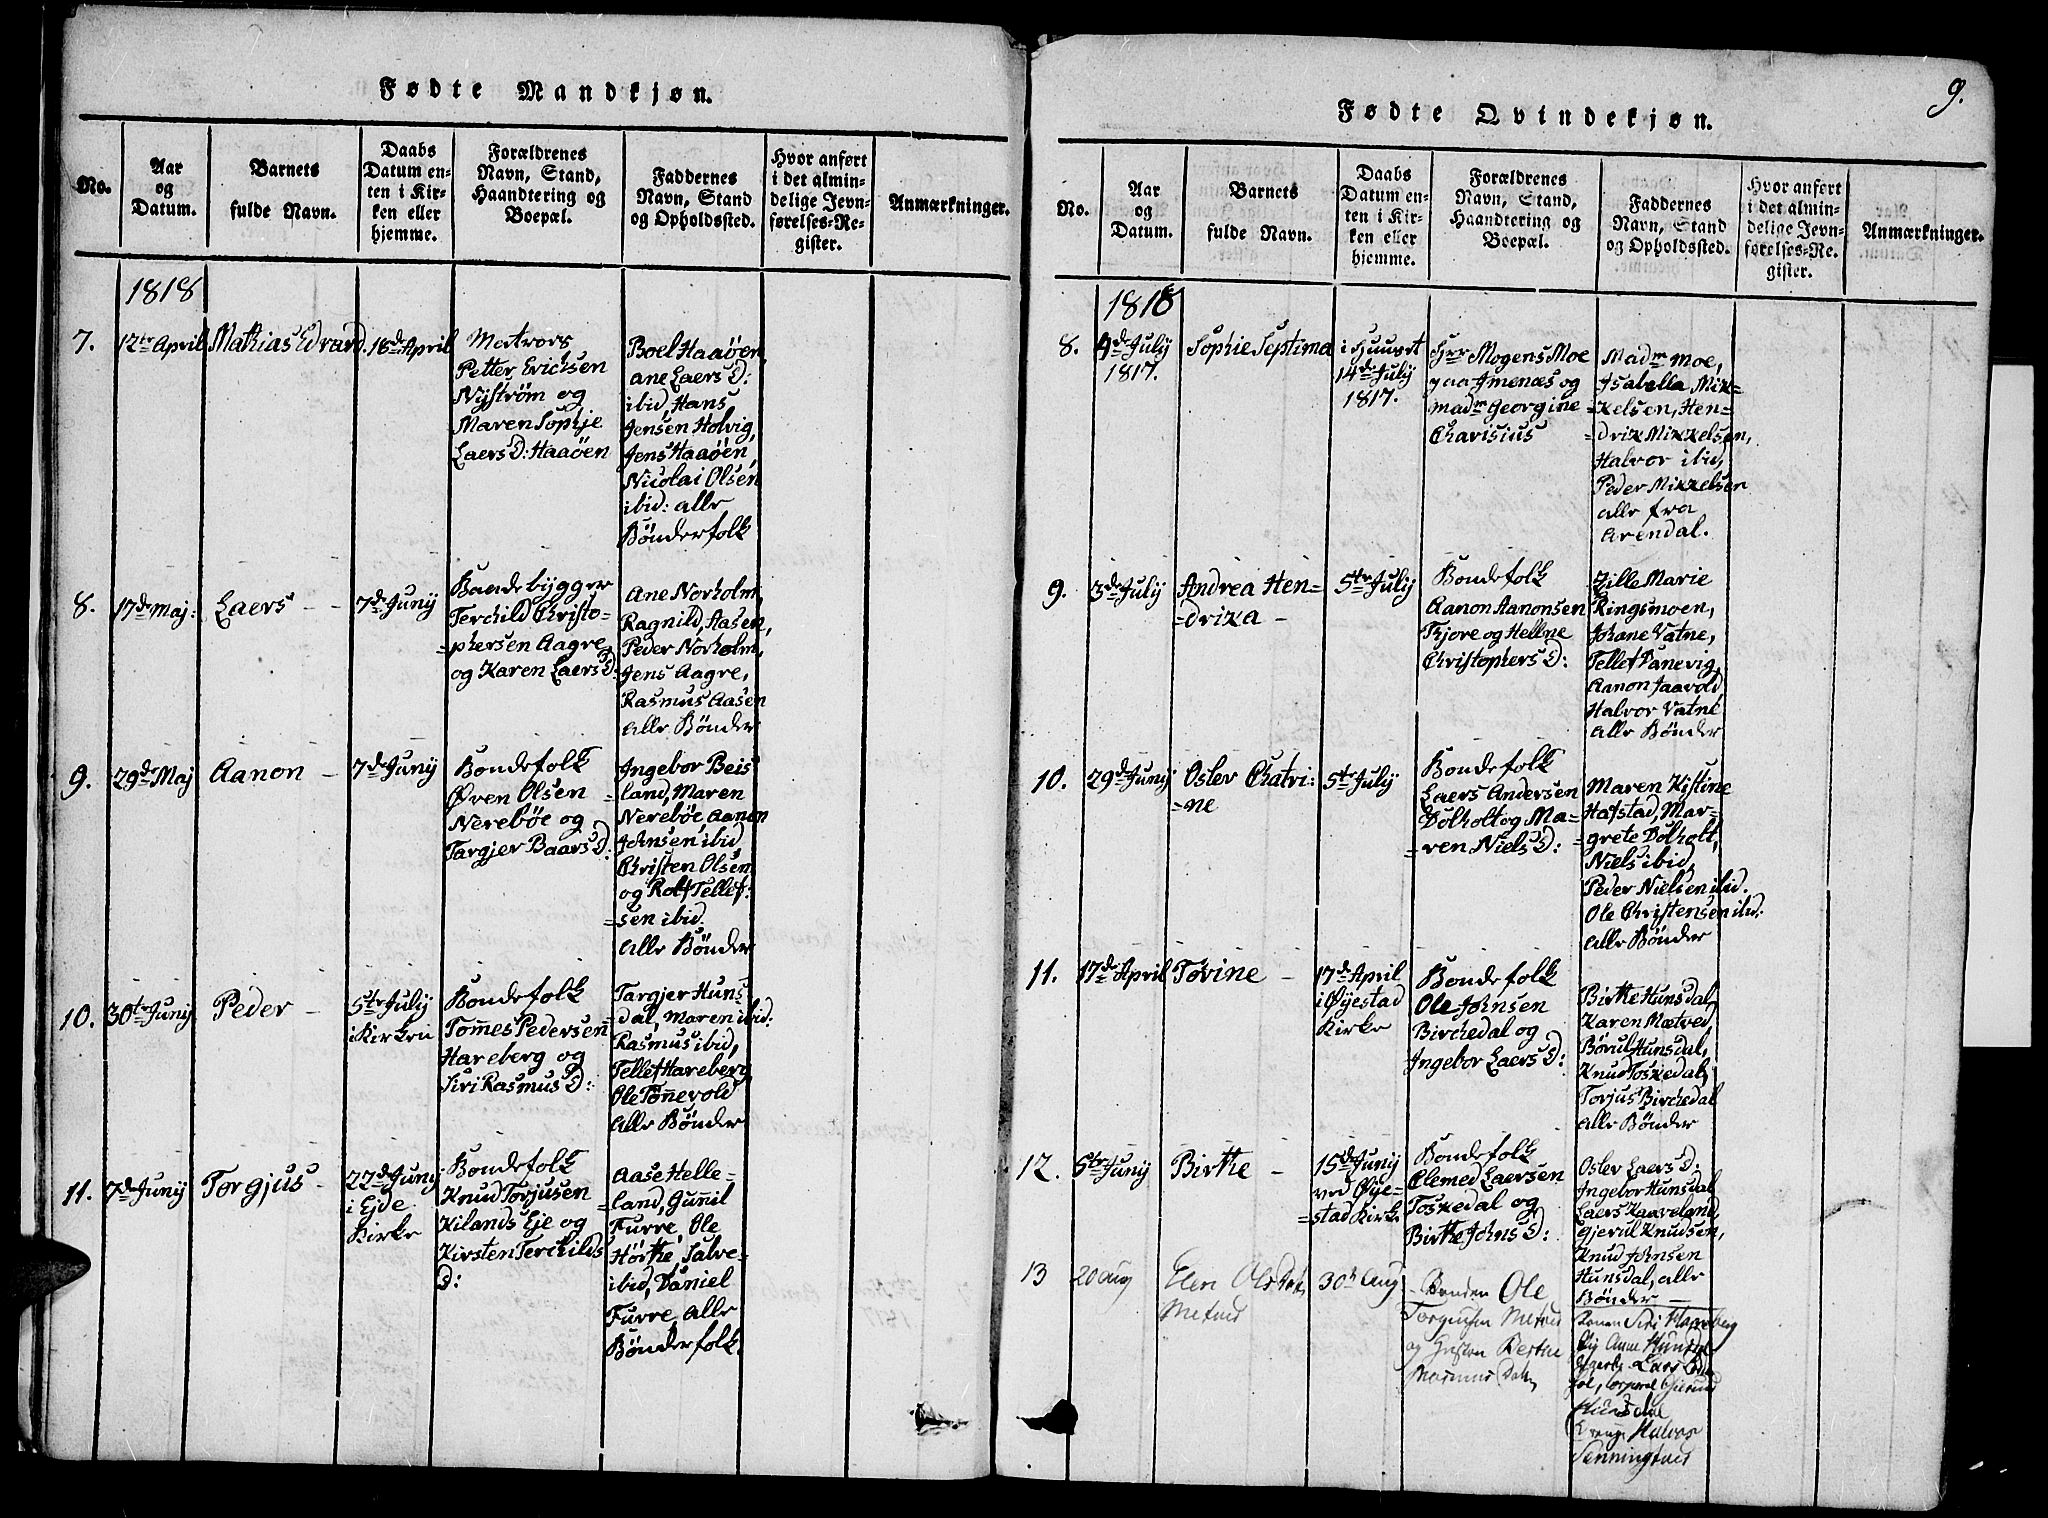 Fødte Mandkjøn.
No.
Aar
og
Datum.
Barnets
fulde Navn.
Daabs
Datum en-
ten i Kir-
ken eller
hjemme.
Forældrenes
Navn, Stand,
Haandtering og
Boepæl.
Faddernes
Navn, Stand
og Opholdssted.
Hvor anført
i det almin-
delige Jevn-
førelses-Re-
gister.
Anmærkninger.
1818
7.
12te April
Mathias Edvard
18de April
Matros
Petter Erichsen
Nyström og
Maren Sophje
Laers D: Haaöen
Boel Haaöen,
Ane Laers D:
ibid, Hans
Jensen Holvig,
Jens Haaöen,
Nicolai Olsen
ibid: alle
Bönderfolk
8.
17de Maj:
Laers - -
7de Junÿ
Baadebÿgger
Terchild Christo-
=phersen Aagre
og Karen Laers D:
Ane Norholm,
Ragnild, Aasen,
Peder Norholm,
Jens Aagre,
Rasmus Aasen
alle Bönder
9.
29de Maj
Aanon -
7de Junÿ
Bondefolk
Øven Olsen
Nereböe og
Targjer Baars D:
Ingebor Beis
=land, Maren
Nereböe, Aanon
Johnsen ibid
Christen Olsen
og Rolf Tellef:
=sen ibid.
alle Bönder
10.
30te Junÿ
Peder -
5te Julÿ
i Kirken
Bondefolk
Tom̄es Pedersen
Hareberg og
Siri Rasmus D:
Targjer Huns
=dal, Maren ibid:
Rasmus ibid,
Tellef Hareberg,
Ole Tön̄evold
alle Bönder
11.
7de Junÿ
Torgjus -
27de Junÿ
i Ejde
Kirke
Bondefolk
Knud Torjusen
Kilands Eje og
Kirsten Terchilds
D:
Aase Helle-
=land, Gun̄il
Furre, Ole
Hörthe, Salve-
ibid, Daniel
Furre, alle
Bönderfolk.
9.
Fødte Qvindekjøn.
No.
Aar
og
Datum.
Barnets
fulde Navn.
Daabs
Datum en-
ten i Kir-
ken eller
hjemme.
Forældrenes
Navn, Stand,
Haandtering og
Boepæl.
Faddernes
Navn, Stand
og Opholdssted.
Hvor anført
i det almin-
delige Jevn-
førelses-Re-
gister.
Anmærkninger.
1818
8.
4de Julÿ
1817.
Sophie Septima
i Huuset
14de Julÿ
1817.
Hrr Mogens Moe
paa Imenæs og
Madm Georgine
Charisius
Madm Moe,
Isabella Mik-
=kelsen, Hen-
=drik Mikkelsen,
Halvor ibid,
Peder Mikkelsen
alle fra
Arendal.
9.
3de Julÿ
Andrea Hen-
=drika -
5te Julÿ
Bondefolk
Aanon Aanonsen
Fjore og Hellne
Christophers D:
Zille Marie
Ringsmoen,
Johane Vatne,
Tellef Vanevig,
Aanon Jaavold
Halvor Vatne
alle Bönder
10.
29de Junÿ
Oslev Chatri-
=ne
5te Julÿ
Bondefolk
Laers Andersen
Dolholt og Ma-
=ren Niels D:
Maren Kistine
Hafstad, Mar-
=grete Dolholt,
Niels ibid,
Peder Nielsen ibid.
Ole Christensen ibid:
alle Bönder
11.
17de April
Tovine -
17de April
i Øyestad
Kirke
Bondefolk
Ole Johnsen
Birchedal og
Ingebor Laers D:
Birthe Hunsdal,
Karen Mætved,
Börul Hunsdal,
Knud Toskedal,
Torjus Birchedal
alle Bönder
12.
5te Junÿ
Birthe -
15de Junÿ
ved Øye-
=stad Kirke
Bondefolk
Clemed Laersen
Toskedal og
Birthe Johns D:
Oslev Laers D:
Ingebor Hunsdal
Laers Kaaveland,
Gjerul Knudsen,
Knud Johnsen
Hunsdal, alle
Bönder -
13
20 Aug
Elen Olsdat
Metved
30te Aug
Bonden Ole
Torgersen Metved
og Hustru Berthe
Konen Siri Hareberg
Pig Anne Hunsdal
Hunsdal
Dreng Halvor